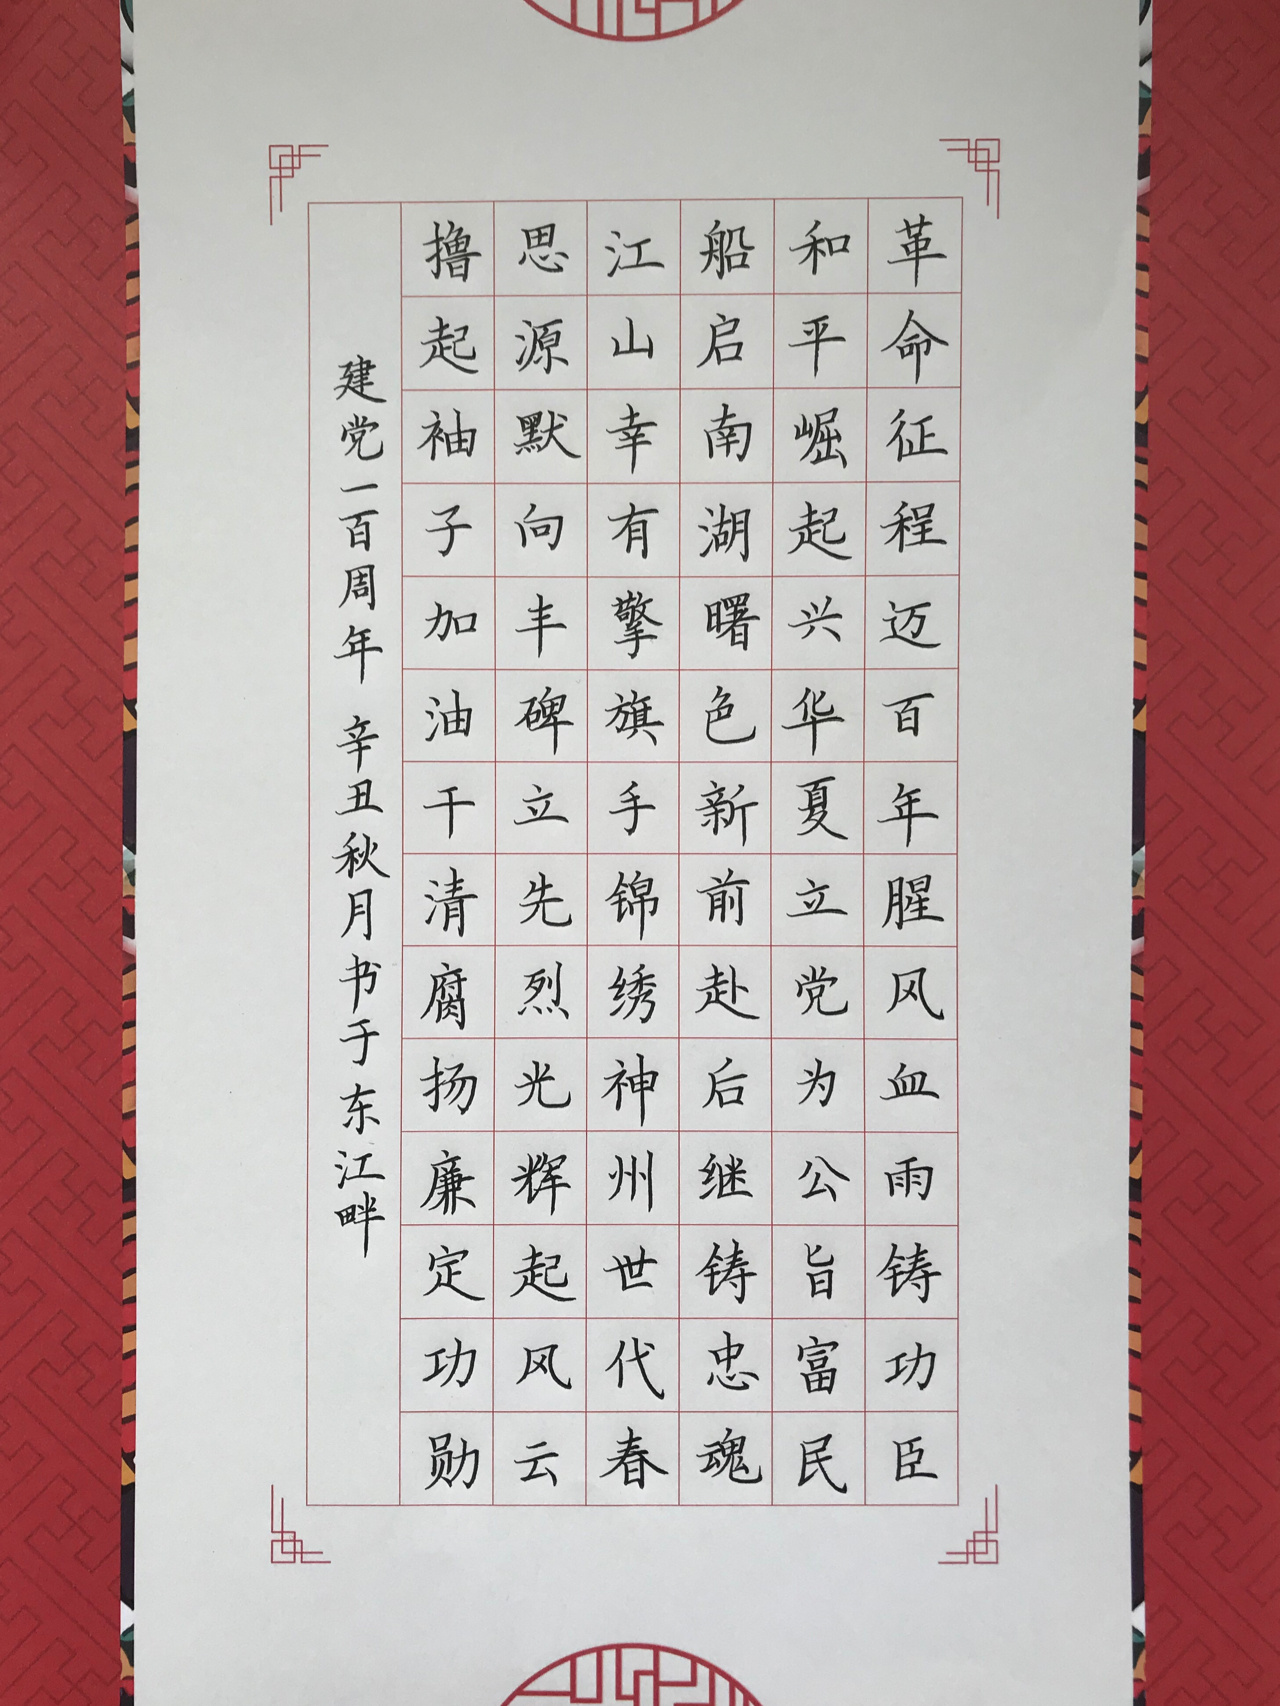 革命征程迈百年腥风血雨铸功臣
和平崛起兴华夏立党为公旨富民
船启南湖曙色新前赴后继铸忠魂
江山幸有擎旗手锦绣神州世代春
思源默向丰碑立先烈光辉起风云
撸起袖子加油干清腐扬廉定功勋
建党一百周年 辛丑秋月书于东江畔